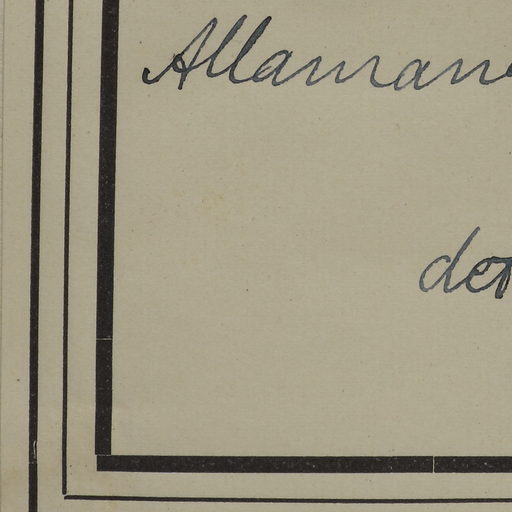 Allamand
det